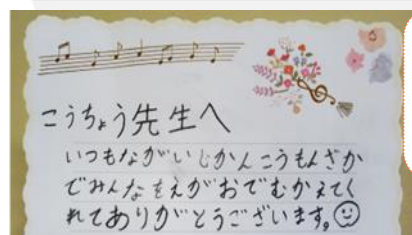 こうちょう先生へ
いつもながいじかんこうもんざか
でみんなをえがおでむかえてく
れてありがとうございます。